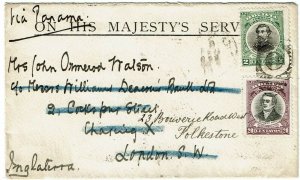 Via Panama
ON HIS MAJESTY'S SERV
Mrs John Ormerod Watson
c/o Messrs Williams Deacon's Bank Ld
2 Cockspur Street
Charing X
London. S.W
23 Bouverie Road West
Folkestone
Inglaterra
2
20 CENTAVOS 20